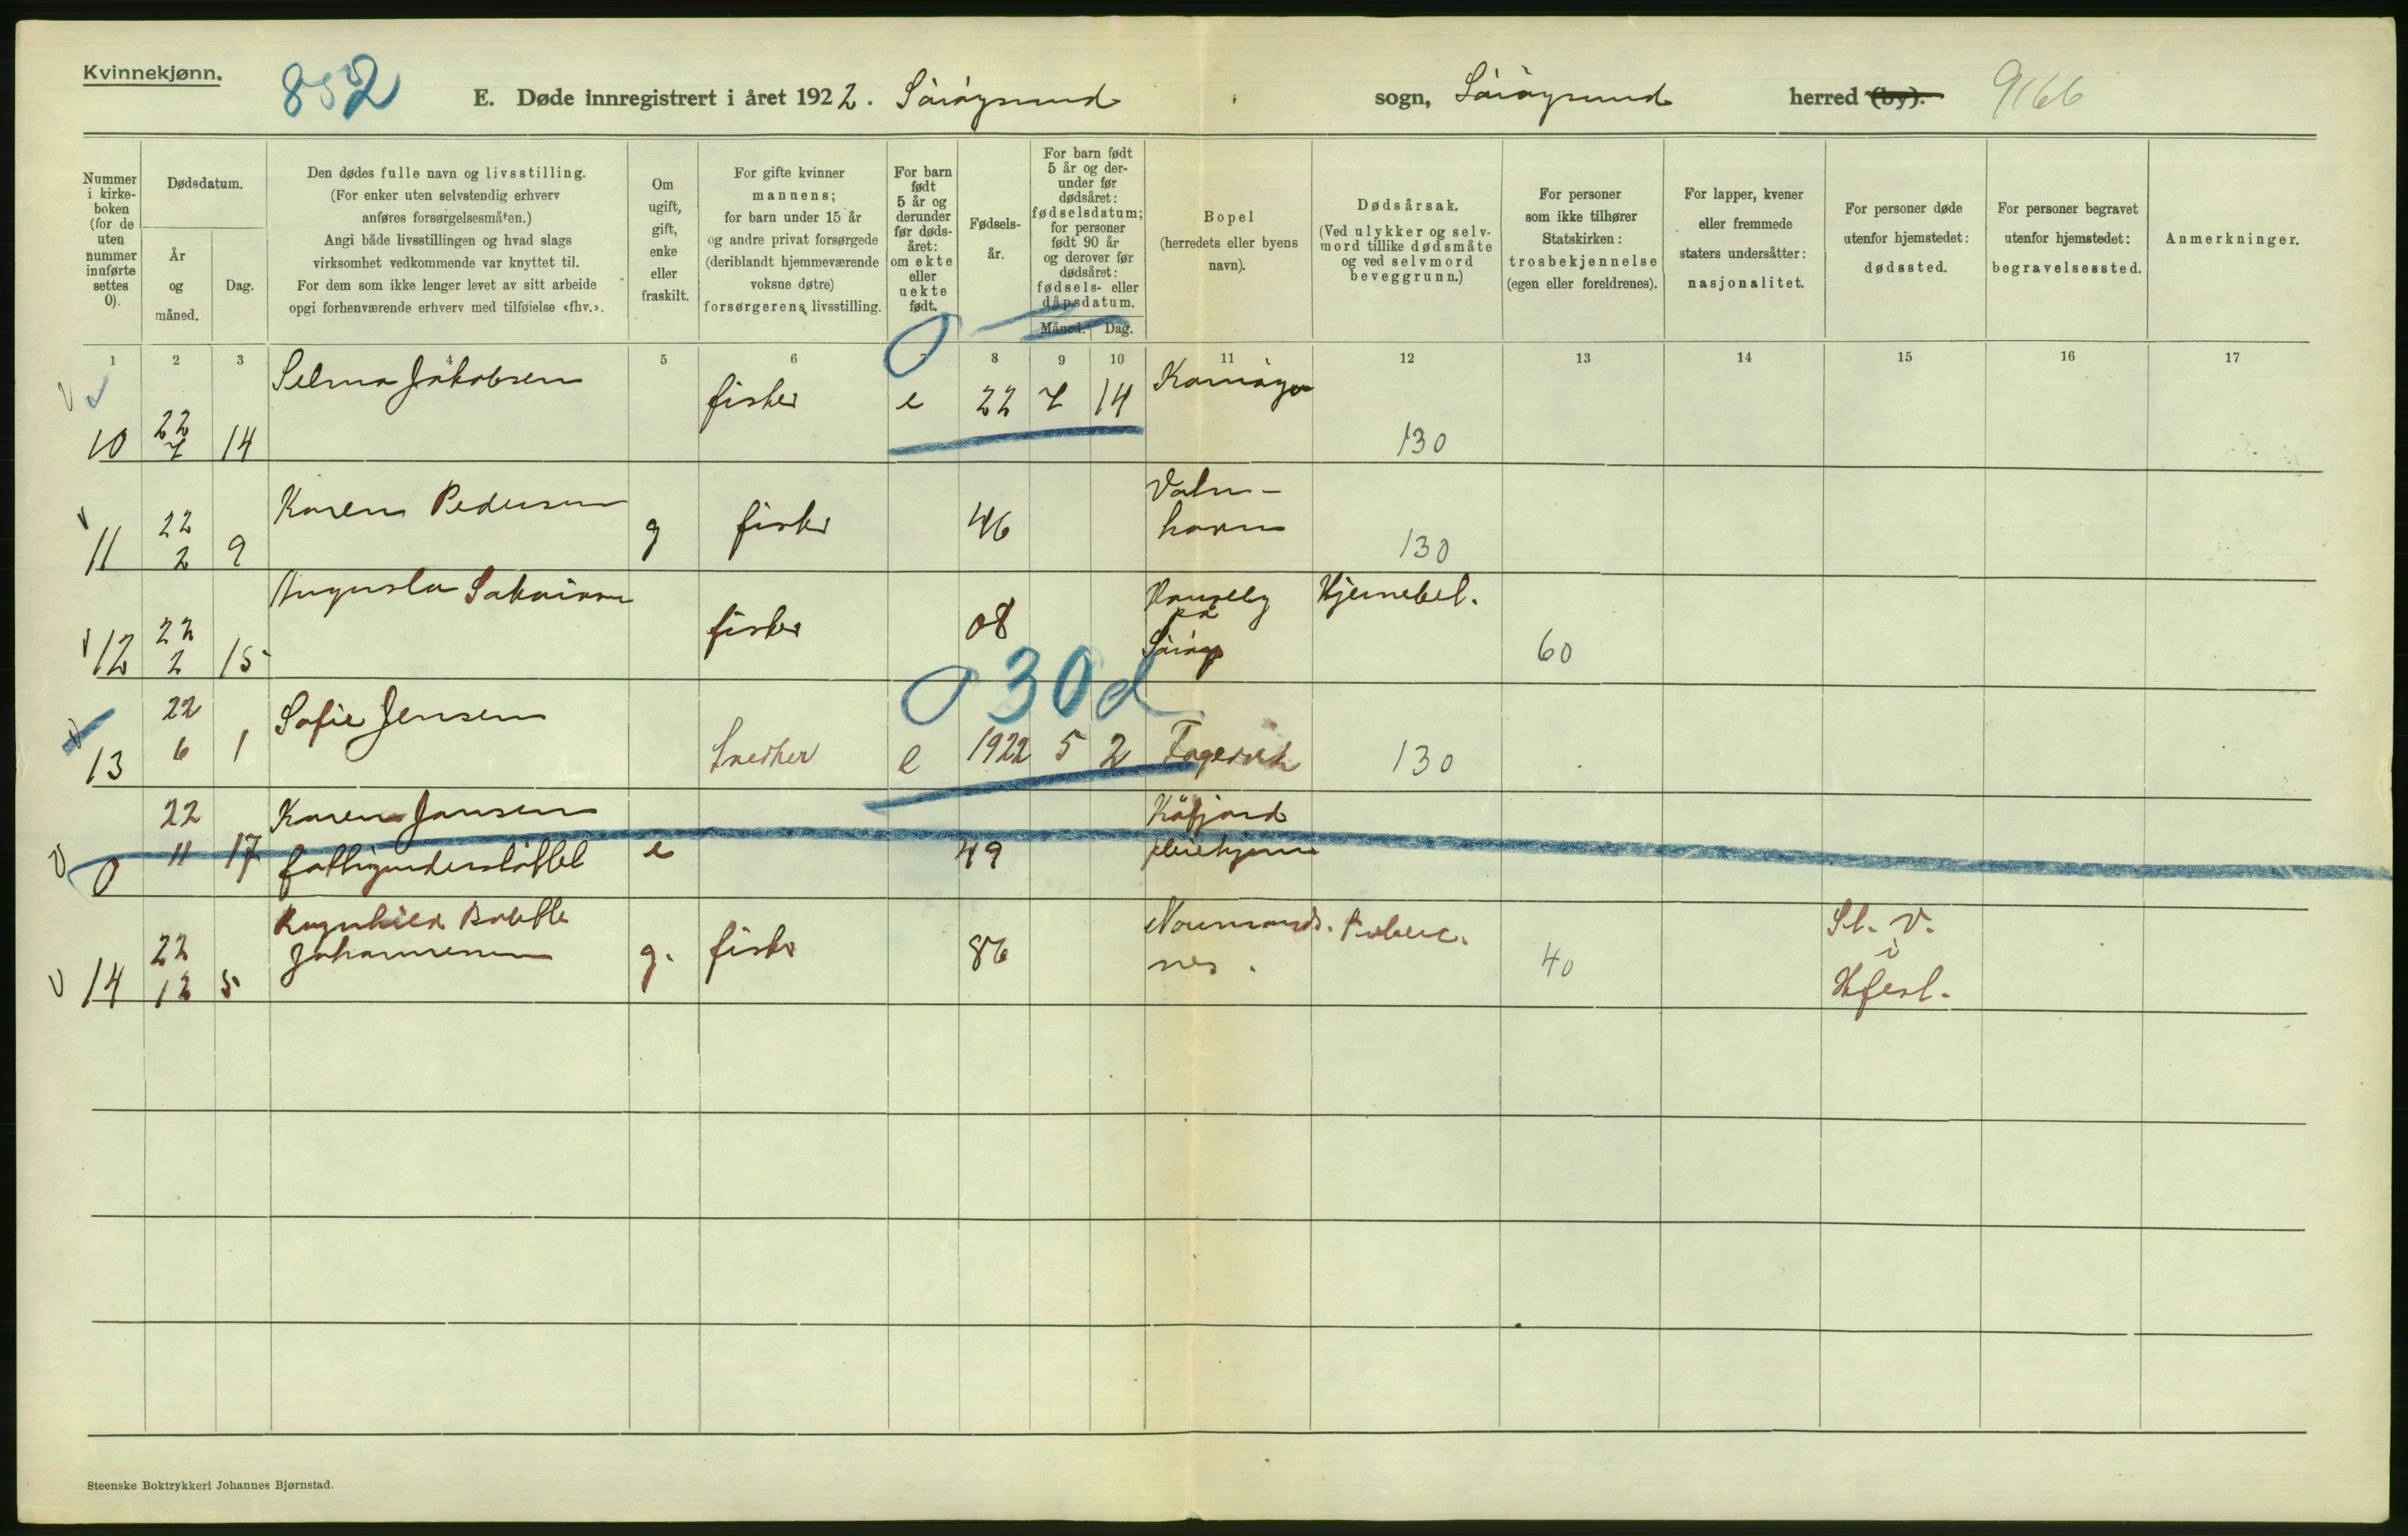 Kvinnekjønn.
852
E. Døde innregistrert i året 1922. Sørøysund sogn, Sørøysund herred (by). 9166
Nummer i kirke- boken (for de uten nummer innførte settes 0).
Dødsdatum.
År og måned.
Dag.
Den dødes fulle navn og livsstilling.
(For enker uten selvstendig erhverv
anføres forsørgelsesmåten.)
Angi både livsstillingen og hvad slags
virksomhet vedkommende var knyttet til.
For dem som ikke lenger levet av sitt arbeide
opgi forhenværende erhverv med tilføielse «fhv.».
Om ugift, gift, enke eller fraskilt.
For gifte kvinner
mannens;
for barn under 15 år
og andre privat forsørgede
(deriblandt hjemmeværende
voksne døtre)
forsørgerens livsstilling.
For barn født 5 år og derunder før døds- året: om ekte eller uekte født.
Fødsels- år.
For barn født 5 år og der- under før dødsåret: fødselsdatum; for personer født 90 år og derover før dødsåret: fødsels- eller dåpsdatum.
Måned. Dag.
Bopel
(herredets eller byens
navn).
Dødsårsak.
(Ved ulykker og selv-
mord tillike dødsmåte
og ved selvmord
beveggrunn.)
For personer
som ikke tilhører
Statskirken:
trosbekjennelse
(egen eller foreldrenes).
For lapper, kvener
eller fremmede
staters undersåtter:
nasjonalitet.
For personer døde
utenfor hjemstedet:
dødssted.
For personer begravet
utenfor hjemstedet:
begravelsessted.
Anmerkninger.
1 2 3 4 5 6 7 8 9 10 11 12 13 14 15 16 17
Selma Jakobsen
10 22 14 fisker e 22 14 Kamøyen 130
Karen Pedersen
11 22 2 9 g fisker 46 havn 130
Augusta
12 22 2 15 fisker 08 på Sørøy Hjernebet. 60
0 30 d
Sofie Jensen
13 22 6 1 Snedker e 1922 5 2 Fagervik 130
Karen Jansen
0 22 11 17 fattigunderstøttet e 49 Kåfjord pleiehjem
Ragnhild
Johannesen
14 22 12 5 g. fisker 86 nes. Tuberc. 40 St. V. i Hfest.
Steenske Boktrykkeri Johannes Bjørnstad.